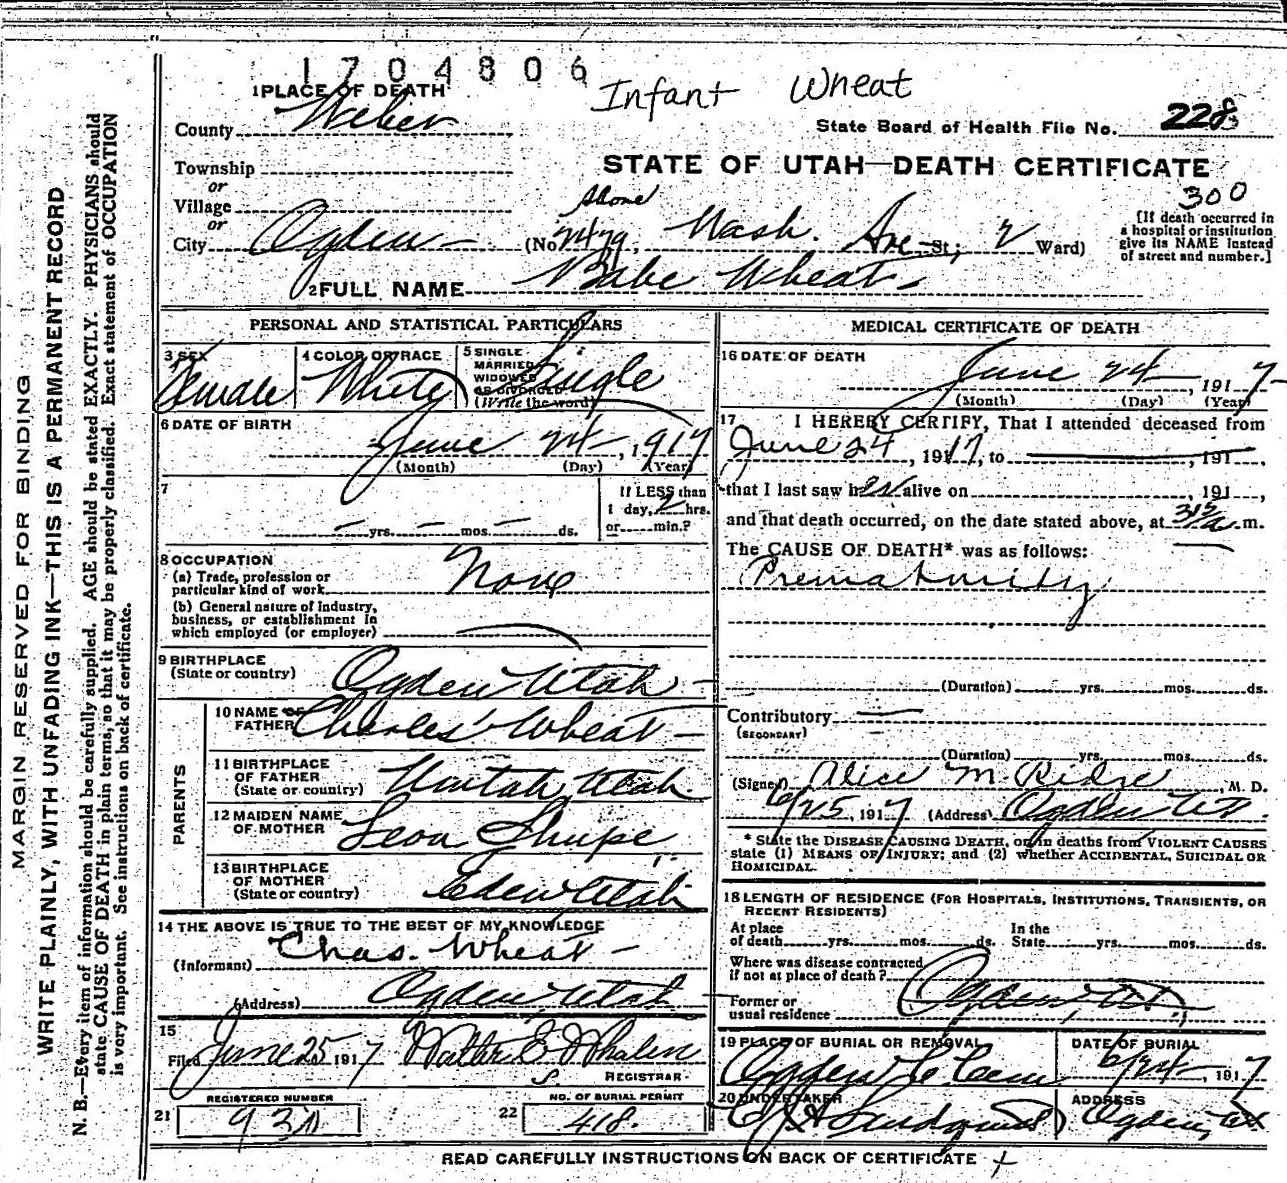 1704806
Infant Wheat
1 PLACE OF DEATH
County Weber
State Board of Health File No. 228
Township
or
Village
or
City Ogden
STATE OF UTAH—DEATH CERTIFICATE
300
[If death occurred in
a hospital or institution
give its NAME instead
of street and number.]
(No. 2479, Wash. Ave St; 2 Ward)
2 FULL NAME Babe Wheat
PERSONAL AND STATISTICAL PARTICULARS
3 SEX
Female
4 COLOR OR RACE
White
5 SINGLE
MARRIED
WIDOWED
OR DIVORCED
(Write the word)
Single
6 DATE OF BIRTH
June 24, 1917
(Month) (Day) (Year)
7
— yrs. — mos. — ds.
If LESS than
1 day, 2 hrs.
or min.?
8 OCCUPATION
(a) Trade, profession or
particular kind of work None
(b) General nature of industry,
business, or establishment in
which employed (or employer)
9 BIRTHPLACE
(State or country) Ogden Utah
PARENTS
10 NAME OF
FATHER Charles Wheat
11 BIRTHPLACE
OF FATHER
(State or country) Uintah Utah
12 MAIDEN NAME
OF MOTHER Leon Shupe
13 BIRTHPLACE
OF MOTHER
(State or country) Eden Utah
14 THE ABOVE IS TRUE TO THE BEST OF MY KNOWLEDGE
(Informant) Chas. Wheat
(Address) Ogden Utah
15
Filed June 25 1917 Walter E Whalen
REGISTRAR
REGISTERED NUMBER
21
NO. OF BURIAL PERMIT
22 418.
MEDICAL CERTIFICATE OF DEATH
16 DATE OF DEATH
June 24, 1917
(Month) (Day) (Year)
17 I HEREBY CERTIFY, That I attended deceased from
June 24, 1917, to , 191 ,
that I last saw her alive on , 191 ,
and that death occurred, on the date stated above, at a.m.
The CAUSE OF DEATH* was as follows:
Prematurity
(Duration) yrs. mos. ds.
Contributory —
(SECONDARY)
(Duration) yrs. mos. ds.
(Signed) Alice M. Ridge, M. D.
6/25, 1917 (Address) Ogden Ut.
* State the DISEASE CAUSING DEATH, or in deaths from VIOLENT CAUSES
state (1) MEANS OF INJURY; and (2) whether ACCIDENTAL, SUICIDAL OR
HOMICIDAL.
18 LENGTH OF RESIDENCE (FOR HOSPITALS, INSTITUTIONS, TRANSIENTS, OR
RECENT RESIDENTS)
At place
of death yrs. mos. ds.
In the
State yrs. mos. ds.
Where was disease contracted
if not at place of death?
Former or
usual residence Ogden, Ut.
19 PLACE OF BURIAL OR REMOVAL
Ogden C Cem
DATE OF BURIAL
6/24, 1917
20 UNDERTAKER
ADDRESS
Ogden, Ut
READ CAREFULLY INSTRUCTIONS ON BACK OF CERTIFICATE
MARGIN RESERVED FOR BINDING
WRITE PLAINLY, WITH UNFADING INK—THIS IS A PERMANENT RECORD
N. B.—Every item of information should be carefully supplied. AGE should be stated EXACTLY. PHYSICIANS should
state CAUSE OF DEATH in plain terms, so that it may be properly classified. Exact statement of OCCUPATION
is very important. See instructions on back of certificate.